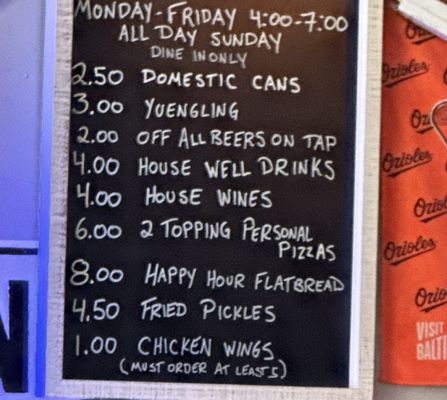 MONDAY-FRIDAY 4:00-7:00
ALL DAY SUNDAY
DINE IN ONLY
2.50 DOMESTIC CANS
3.00 YUENGLING
2.00 OFF ALL BEERS ON TAP
4.00 HOUSE WELL DRINKS
4.00 HOUSE WINES
6.00 2 TOPPING PERSONAL
PIZZAS
8.00 HAPPY HOUR FLATBREAD
4.50 FRIED PICKLES
1.00 CHICKEN WINGS
(MUST ORDER AT LEAST 5)
Orioles
Orioles
Orioles
Orioles
VISIT